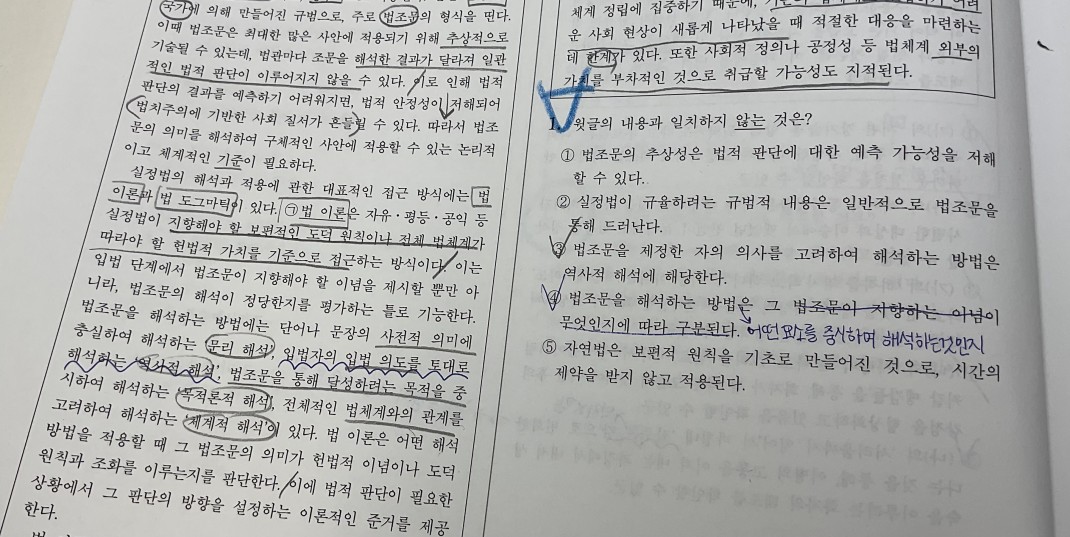 국가에 의해 만들어진 규범으로, 주로 법조문의 형식을 띤다.
이때 법조문은 최대한 많은 사안에 적용되기 위해 추상적으로
기술될 수 있는데, 법관마다 조문을 해석한 결과가 달라져 일관
적인 법적 판단이 이루어지지 않을 수 있다. 이로 인해 법적
판단의 결과를 예측하기 어려워지면, 법적 안정성이 저해되어
법치주의에 기반한 사회 질서가 흔들릴 수 있다. 따라서 법조
문의 의미를 해석하여 구체적인 사안에 적용할 수 있는 논리적
이고 체계적인 기준이 필요하다.
실정법의 해석과 적용에 관한 대표적인 접근 방식에는 법
이론과 법 도그마틱이 있다. ㉠법 이론은 자유·평등·공익 등
실정법이 지향해야 할 보편적인 도덕 원칙이나 전체 법체계가
따라야 할 헌법적 가치를 기준으로 접근하는 방식이다. 이는
입법 단계에서 법조문이 지향해야 할 이념을 제시할 뿐만 아
니라, 법조문의 해석이 정당한지를 평가하는 틀로 기능한다.
법조문을 해석하는 방법에는 단어나 문장의 사전적 의미에
충실하여 해석하는 '문리 해석', 입법자의 입법 의도를 토대로
해석하는 '역사적 해석', 법조문을 통해 달성하려는 목적을 중
시하여 해석하는 '목적론적 해석', 전체적인 법체계와의 관계를
고려하여 해석하는 '체계적 해석'이 있다. 법 이론은 어떤 해석
방법을 적용할 때 그 법조문의 의미가 헌법적 이념이나 도덕
원칙과 조화를 이루는지를 판단한다. 이에 법적 판단이 필요한
상황에서 그 판단의 방향을 설정하는 이론적인 준거를 제공
한다.
체계 정립에 집중하기 때문에,
운 사회 현상이 새롭게 나타났을 때 적절한 대응을 마련하는
데 한계가 있다. 또한 사회적 정의나 공정성 등 법체계 외부의
가치를 부차적인 것으로 취급할 가능성도 지적된다.
1. 윗글의 내용과 일치하지 않는 것은?
① 법조문의 추상성은 법적 판단에 대한 예측 가능성을 저해
할 수 있다.
② 실정법이 규율하려는 규범적 내용은 일반적으로 법조문을
통해 드러난다.
③ 법조문을 제정한 자의 의사를 고려하여 해석하는 방법은
역사적 해석에 해당한다.
④ 법조문을 해석하는 방법은 그 법조문이 지향하는 이념이
무엇인지에 따라 구분된다. 어떤 요소를 중시하며 해석하는것인지
⑤ 자연법은 보편적 원칙을 기초로 만들어진 것으로, 시간의
제약을 받지 않고 적용된다.